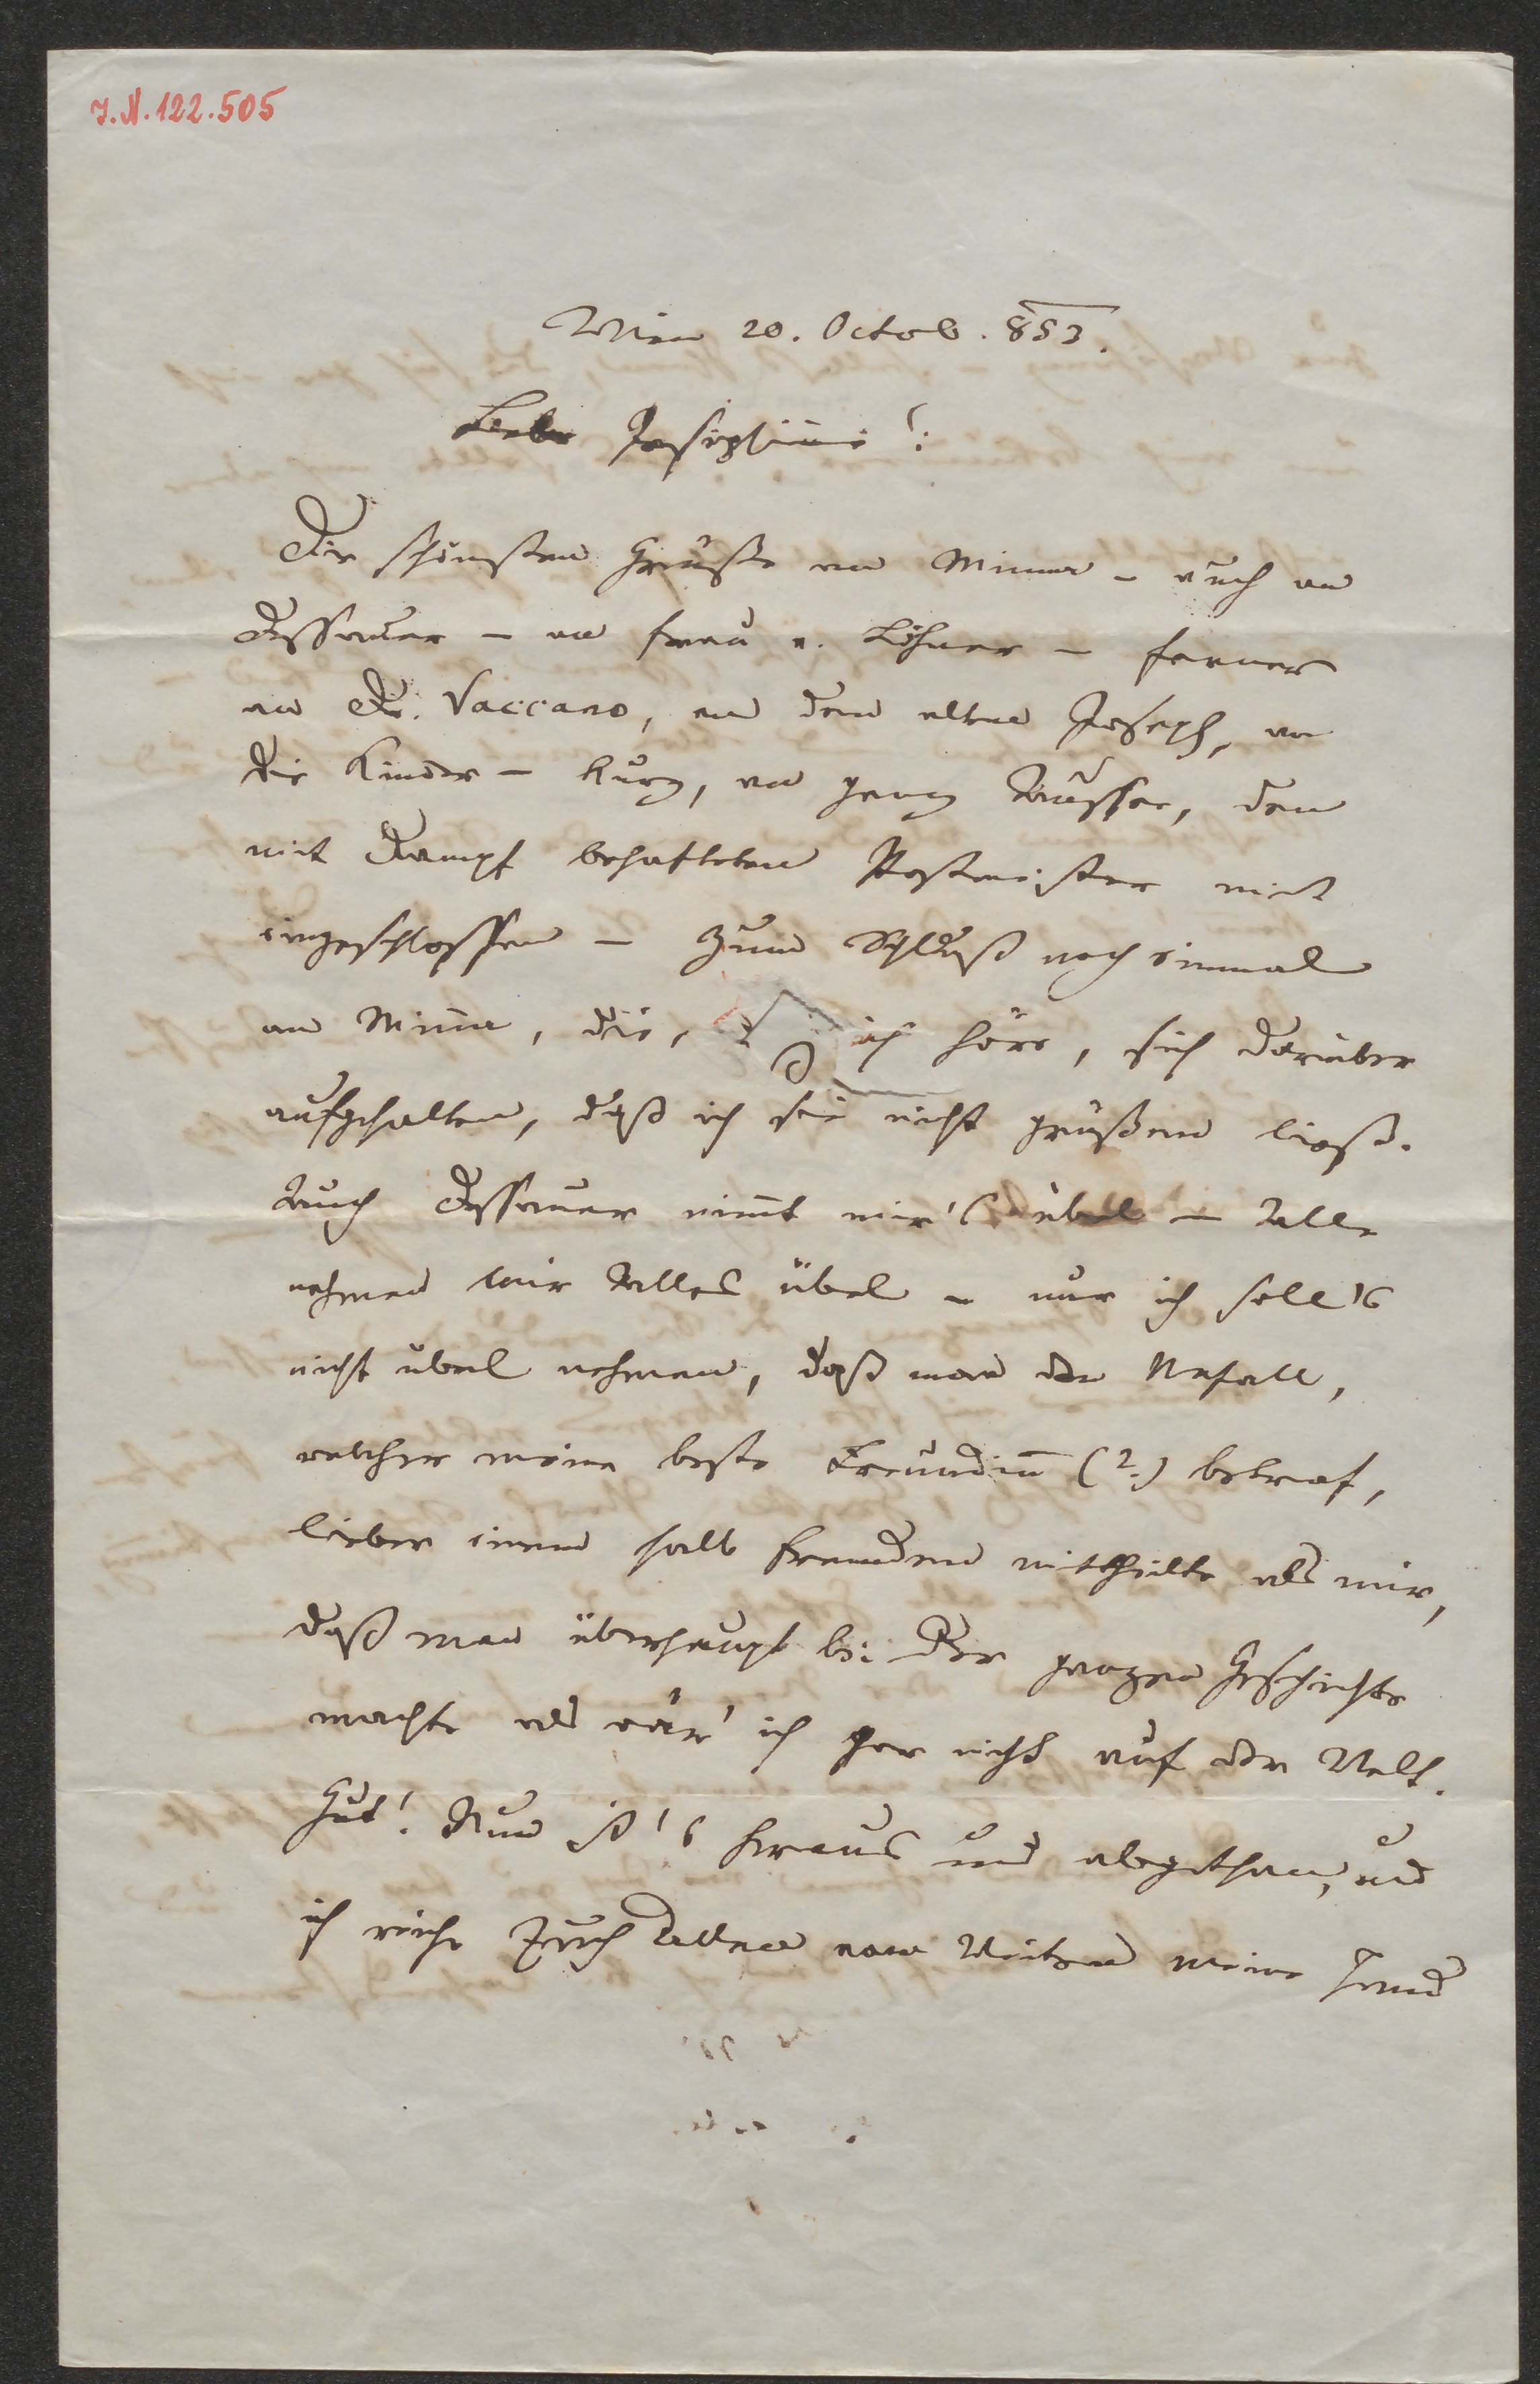 J.N. 122.505
Wien 20. Octob. 853.
Liebe Josephine!
Die schönsten Grüße an Minna – auch an
Dessauer – an Frau v. Löhner – ferner
an Dr. Vaccano, an den alten Joseph, an
die Kinder – kurz, an ganz Aussee, den
mit Dampf behafteten Postmeister mit
eingeschlossen – zum Schluß noch einmal
an Mina, die, ich höre, sich darüber
aufgehalten, daß ich sie nicht grüßen ließ.
Auch Dessauer nimt mir's übel – Alle
nehmen mir Alles übel – nur ich soll's
nicht übel nehmen, daß man den Unfall,
welcher meine beste Freundin (?) betraf,
lieber einem halb Fremden mittheilte als mir,
daß man überhaupt bei der ganzen Geschichte
machte als wär' ich gar nicht auf der Welt.
Gut! Nun ist's heraus und abgethan, und
ich reiche Euch Allen vom Weiten meine Hand